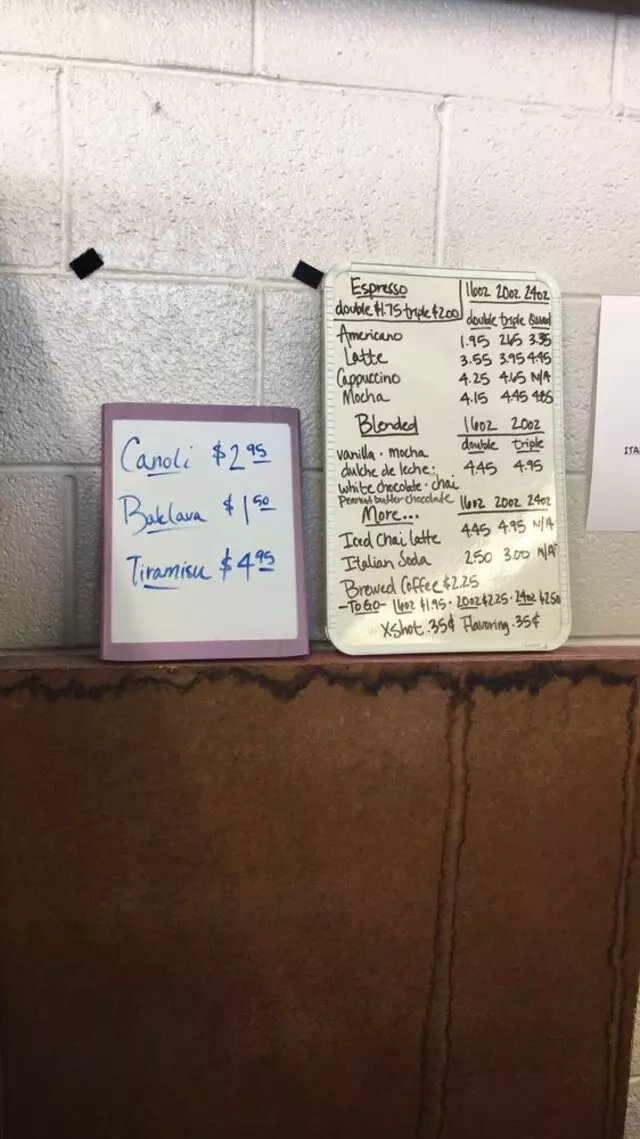 Canoli $2.95
Baklava $1.50
Tiramisu $4.95
Espresso 16oz 20oz 24oz
double $1.75 triple $2.00 double triple Quad
Americano 1.95 2.65 3.35
Latte 3.55 3.95 4.45
Cappuccino 4.25 4.65 N/A
Mocha 4.15 4.45 4.85
Blended 16oz 20oz
double triple
vanilla · mocha
dulche de leche · 4.45 4.95
white chocolate · chai
Peanut butter-chocolate 16oz 20oz 24oz
More...
Iced Chai Latte 4.45 4.95 N/A
Italian Soda 2.50 3.00 N/A
Brewed Coffee $2.25
-To Go- 16oz $1.95 · 20oz $2.25 · 24oz $2.50
XShot .35¢ Flavoring .35¢
ITA